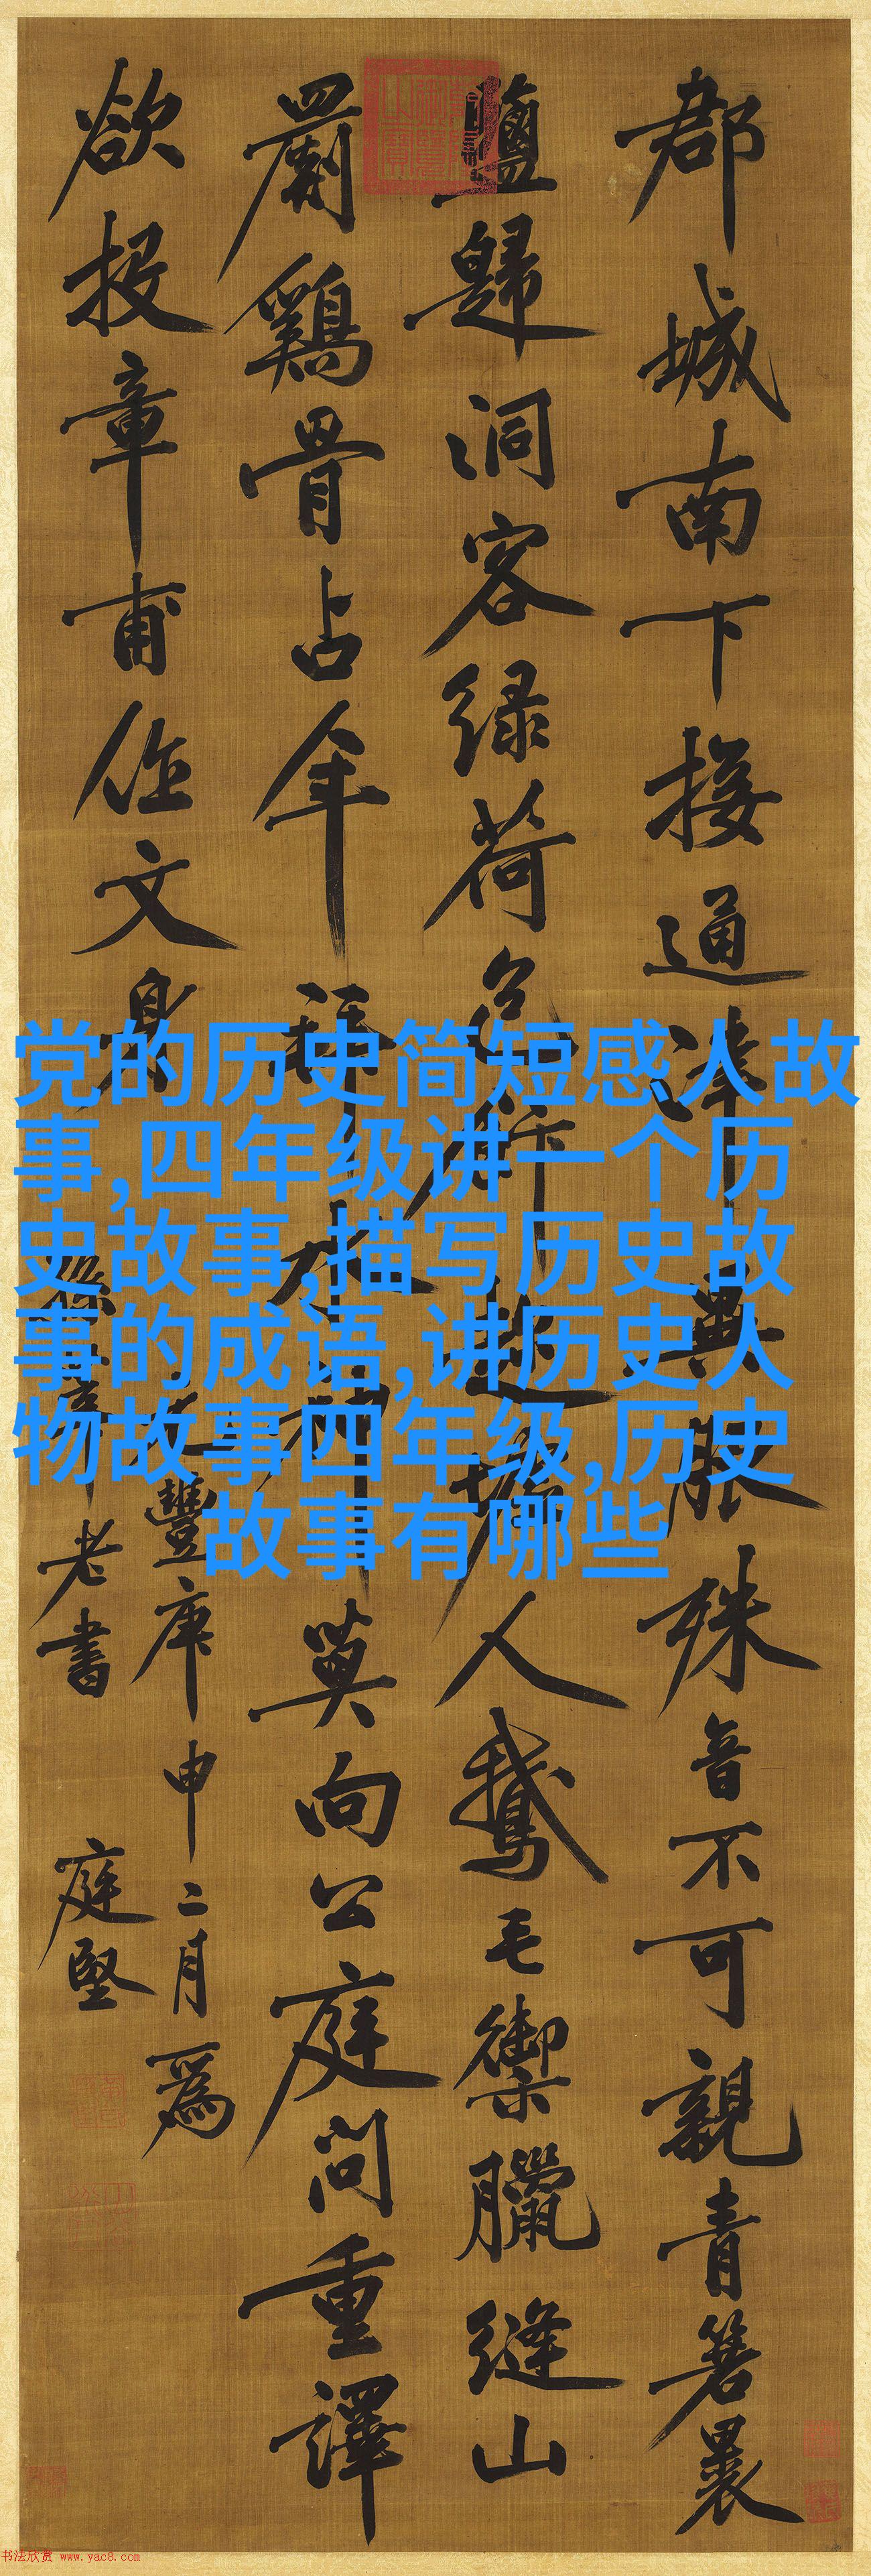 郡城南下接通津異服殊音不可親青箬裹
鹽歸洞客緑荷包飯趁墟人鵝毛禦臘縫山
罽鷄骨占年拜水神莫向公庭問重譯
欲投章甫作文身
豐庚申二月爲
孫莘老書 庭堅
党的历史简短感人故
事,四年级讲一个历
史故事,描写历史故
事的成语,讲历史人
物故事四年级,历史
故事有哪些
书法欣赏 www.yac8.com